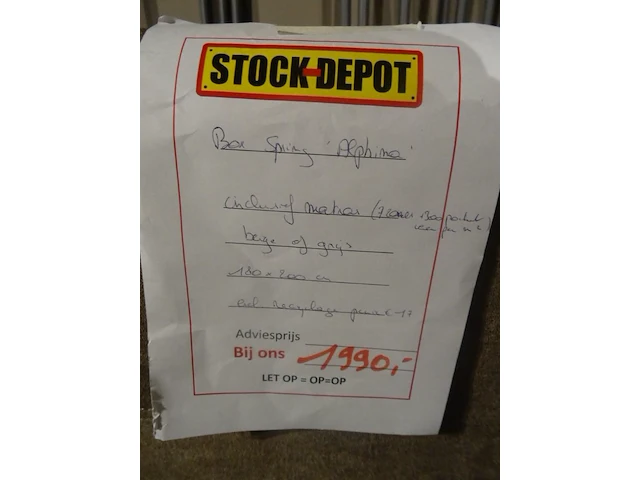 STOCK-DEPOT
Box Spring 'Alphina'
inclusief matras (7 zones
beige of grijs
180 x 200 cm
excl recyclage
Adviesprijs
Bij ons 1990,-
LET OP = OP=OP